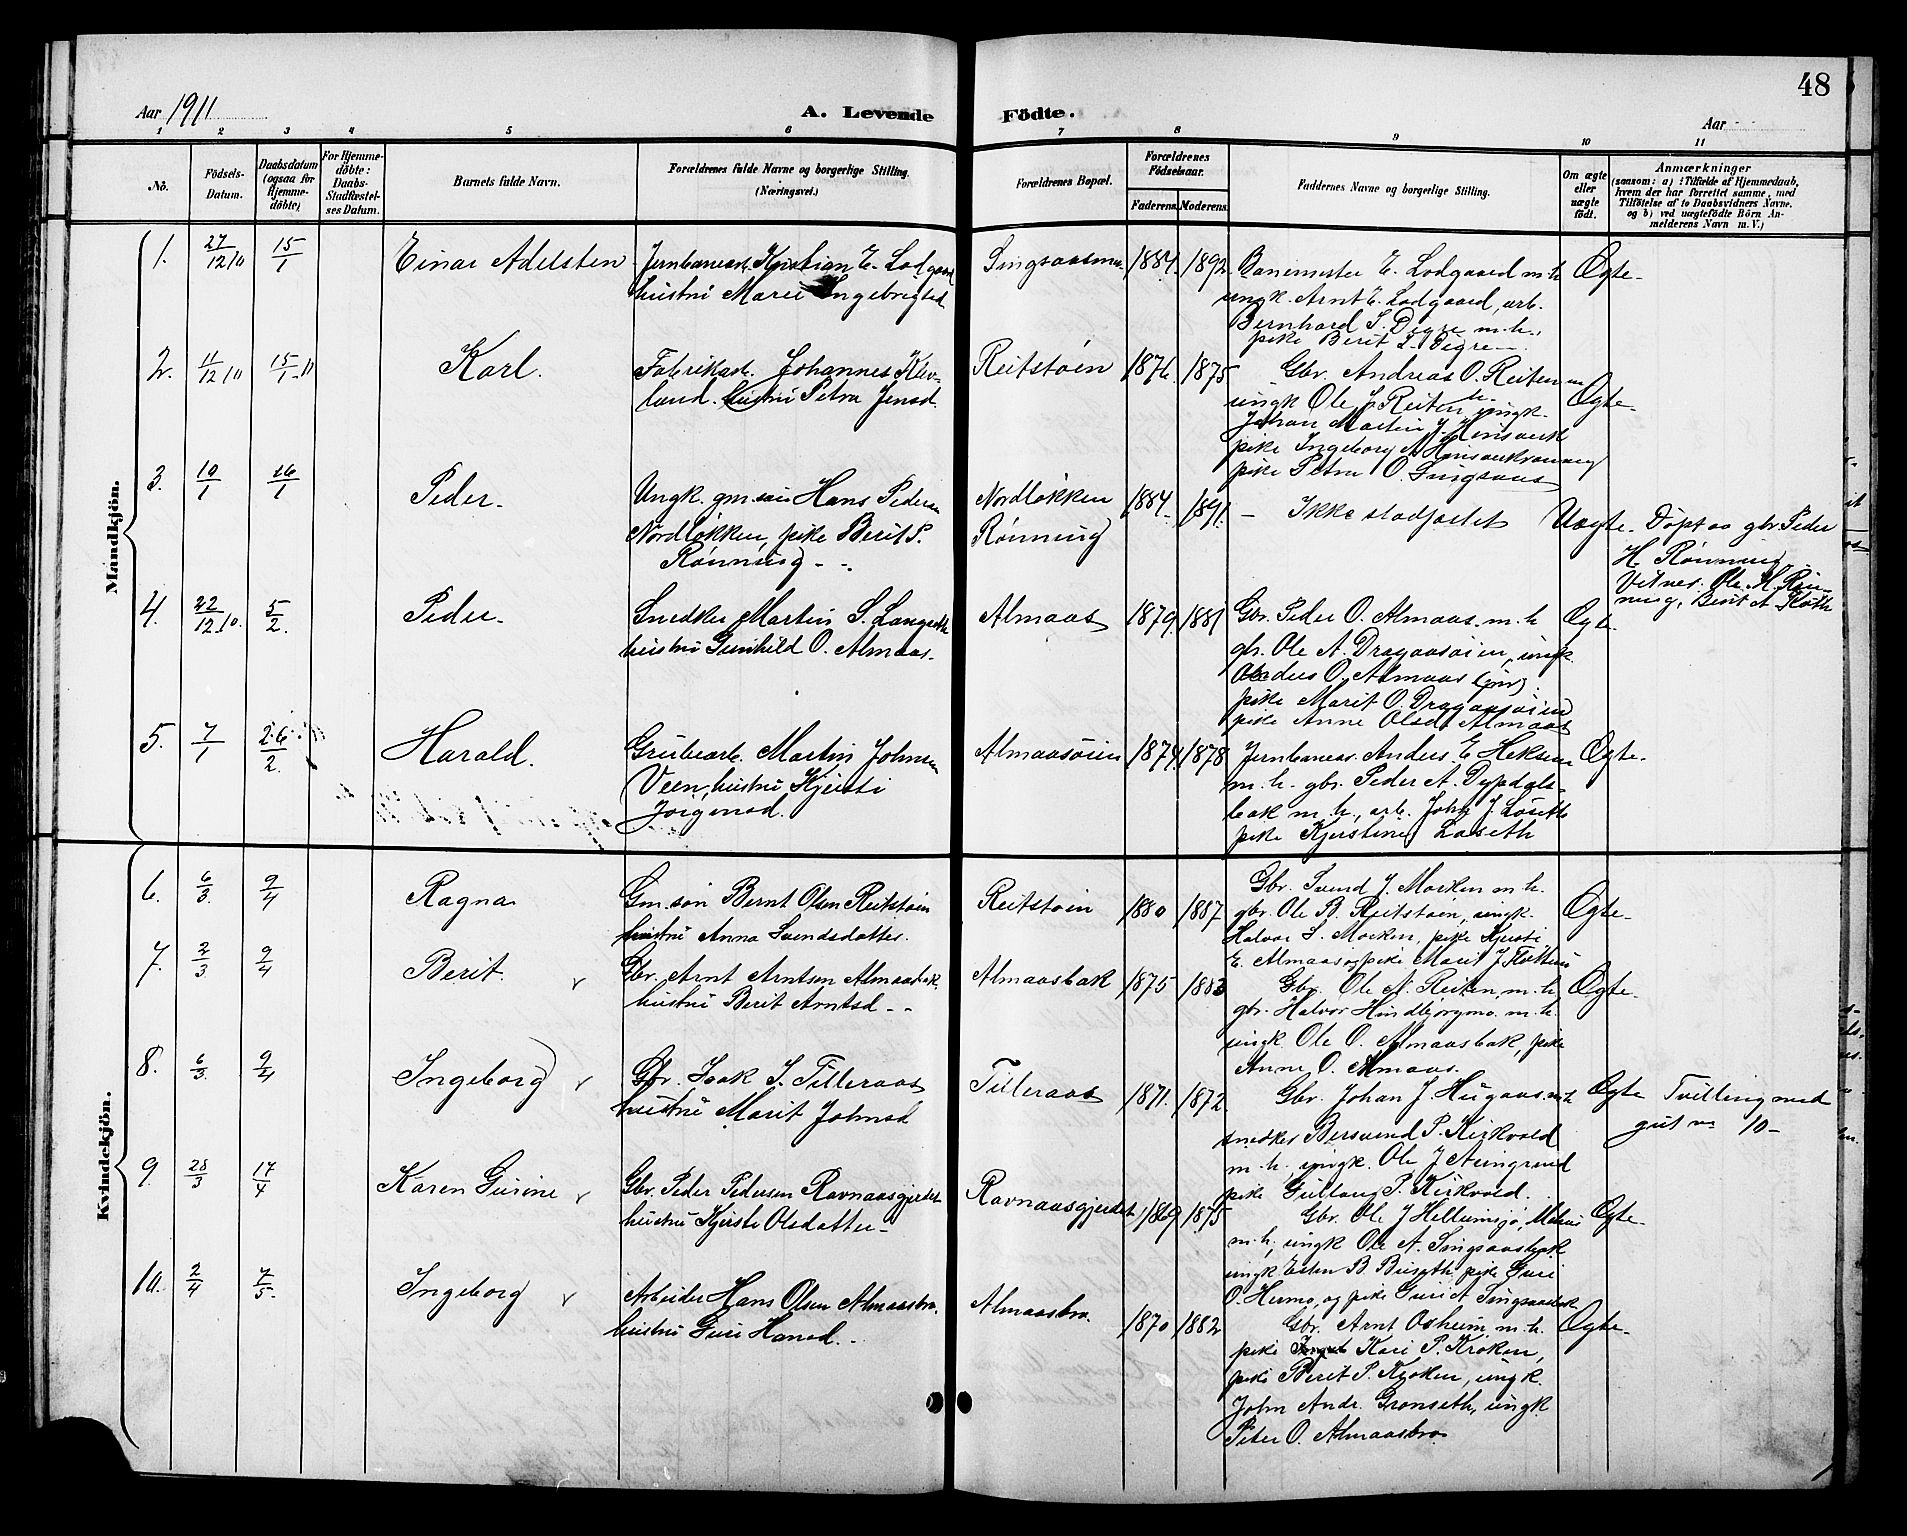 48
Aar 1911
A. Levende Födte.
Aar
1 2 3 4 5 6 7 8 9 10 11
No.
Födsels-
Datum.
Daabsdatum
(ogsaa for
Hjemme-
döbte).
For Hjemme-
döbte:
Daabs-
Stadfæstel-
ses Datum.
Barnets fulde Navn.
Forældrenes fulde Navne og borgerlige Stilling.
(Næringsvei.)
Forældrenes Bopæl.
Forældrenes
Födselsaar.
Faderens. Moderens.
Faddernes Navne og borgerlige Stilling.
Om ægte
eller
uægte
födt.
Anmærkninger
(saasom: a) i Tilfælde af Hjemmedaab,
hvem der har forrettet samme, med
Tilföielse af to Daabsvidners Navne.
og b) ved uægtefödte Börn An-
melderens Navn m. V.)
Mandkjön.
1. 27/12 10 15/1 Einar Adelsten
Jernbanearb. Kristian E. Lodgaard
hustru Marie Ingebrigtsd.
Singsaasmo 1884. 1892.
Banemester E. Lodgaard m. h.
ungk. Arnt E. Lodgaard, arb.
Bernhard S. Digre m. h.,
pike Berit S. Digre
Ægte.
2. 11/12 10 15/1 11 Karl.
Fabrikarb. Johannes Klev-
land. hustru Petra Jensd.
Reitstøen 1876. 1875
Gbr. Andreas O. Reiten m.
h.
ungk Ole J. Reiten, ungk.
Johan Martin J.
pike Ingeborg
pike Petra O. Singsaas
Ægte.
3. 10/1 16/1 Peder.
Ungk. gm. søn Hans Pedersen
Nordløkken, pike Berit P.
Rønning
Nordløkken
Rønning
1884. 1891.
Ikke stadfæstet
Uægte. Døpt av gbr. Peder
H. Rønning
Vitner: Ole H. Røn-
ning, Berit A. Fløtte
4. 22/12 10. 5/2. Peder.
Snedker Martin S. Langseth
hustru Gunhild O. Almaas.
Almaas 1879. 1881
Gbr. Peder O. Almaas. m. h
gbr. Ole A. Dragaasøien, ungk.
O. Almaas (jnr).
pike Marit O. Dragaasøien
pike Anne Olsd. Almaas
Ægte.
5. 7/1 26/2. Harald.
Grubearb. Martin Johnsen
Veen, hustru Kjersti
Almaasøien 1874. 1878
Jernbanearb. Anders E. Heksem
m. h. gbr. Peder A. Dypdals-
bak m. h., arb. John J. Løseth
pike Kjerstine Løseth
Ægte.
Kvindekjön.
6. 6/3. 9/4 Ragna
Gm. søn Bernt Olsen Reitstøen
hustru Anna Svendsdatter.
Reitstøen 1880 1887
Gbr. Svend J. Morken m. h.
gbr. Ole B. Reitstøen, ungk.
Halvor S. Morken, pike Kjersti
E. Almaas og pike Marit J. Fløttum
Ægte.
7. 2/3 9/4 Berit. v
Gbr. Arnt Arntsen Almaasbak.
hustru Berit Arntsd
Almaasbak 1875 1883
Gbr. Ole A. Reiten, m. h,
gbr. Halvor Hindbjørgmo. m. h.
ungk. Ole O. Almaasbak, pike
Anne O. Almaas.
Ægte.
8. 6/3. 9/4 Ingeborg v
Gbr. Isak I. Tilleraas
hustru Marit Johnsd
Tilleraas 1871. 1872.
Gbr. Johan J. Hugaas m. h
snedker Bersvend P. Kirkvold
m. h., ungk. Ole J. Aungrind
pike P. Kirkvold.
Ægte Tvilling med
gut nr 10
9. 28/3 17/4 Karen Gurine v
Gbr. Peder Pedersen Ravnaasgjerdet
hustru Kjersti Olsdatter
Ravnaasgjerdet 1869 1875
Gbr. Ole J.
m. h., ungk Ole A. Singsaasbak
ungk. Esten B. Buseth pike Guri
O. Hermo, og pike Guri A. Singsaasbak
Ægte.
10. 2/4 7/5. Ingeborg v
Arbeider Hans Olsen Almaasbro.
hustru Guri Hansd.
Almaasbro. 1870 1882
Gbr. Arnt Osheim m. h.
pike Kari P. Kroken,
pike Berit P. Kroken, ungk.
John Andr. Grønseth, ungk
Peter O. Almaasbro
Ægte.